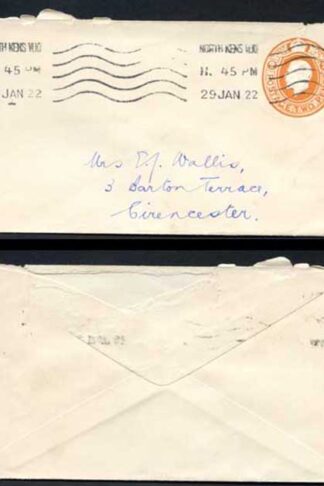 NORTH KENS W.10
45 PM
JAN 22
NORTH KENS W.10
11. 45 PM
29 JAN 22
Mrs E.J. Wallis,
3 Barton Terrace,
Cirencester.